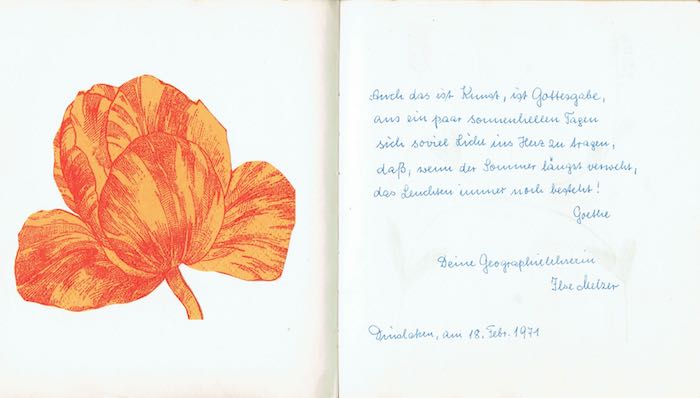 Auch das ist Kunst, ist Gottesgabe,
aus ein paar sonnenhellen Tagen
sich soviel Licht ins Herz zu tragen,
daß, wenn der Sommer längst verweht,
das Leuchten immer noch besteht!
Goethe
Deine Geographielehrerin
Ilse Melzer
Dinslaken, am 18. Febr. 1971